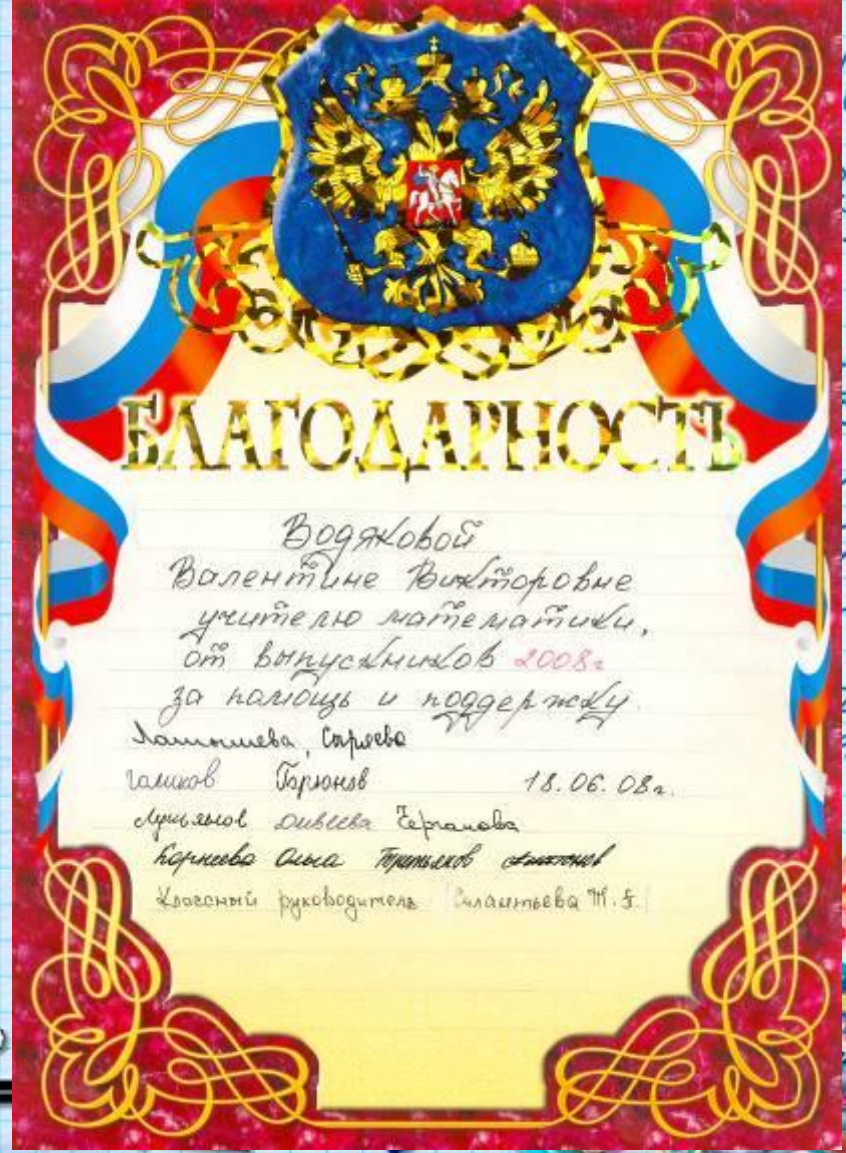 БЛАГОДАРНОСТЬ
Водяковой
Валентине Викторовне
учителю математики,
от выпускников 2008г
за помощь и поддержку.
Сыряева
Галиков Горюнов 18.06.08г.
Лукьянов Дивеева
Корнеева Ольга Третьяков
Классный руководитель Силантьева Т.Г.